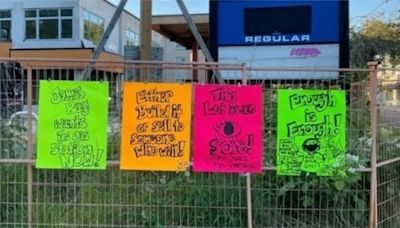 REGULAR
James
Bay
wants
its gas
station
NOW!
Either
Build it
or sell to
someone
who will!
This
Lot is an
Enough
is
Enough!